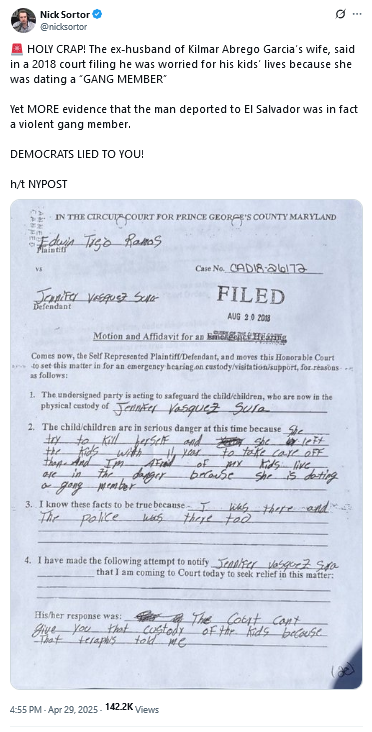 Nick Sortor
@nicksortor
🚨 HOLY CRAP! The ex-husband of Kilmar Abrego Garcia's wife, said
in a 2018 court filing he was worried for his kids' lives because she
was dating a "GANG MEMBER"
Yet MORE evidence that the man deported to El Salvador was in fact
a violent gang member.
DEMOCRATS LIED TO YOU!
h/t NYPOST
IN THE CIRCUIT COURT FOR PRINCE GEORGE'S COUNTY MARYLAND
Edwin Trejo Ramos
Plaintiff
vs
Case No. CAD18-26172
Jennifer Vasquez Sura
Defendant
FILED
AUG 20 2018
Motion and Affidavit for an Emergency Hearing
Comes now, the Self Represented Plaintiff/Defendant, and moves this Honorable Court
to set this matter in for an emergency hearing on custody/visitation/support, for reasons
as follows:
1. The undersigned party is acting to safeguard the child/children, who are now in the
physical custody of Jennifer Vasquez Sura
2. The child/children are in serious danger at this time because She
try to kill herself and she left
the kids with 11 year to take care off
them. And I'm Afred of my kids live
are in the danger because she is dating
a gang member
3. I know these facts to be true because I was there and
The police was there too
4. I have made the following attempt to notify Jennifer Vasquez Sura
that I am coming to Court today to seek relief in this matter:
His/her response was: The Court Can't
give you that custody of the kids because
that terapis told me
(20)
4:55 PM · Apr 29, 2025 · 142.2K Views